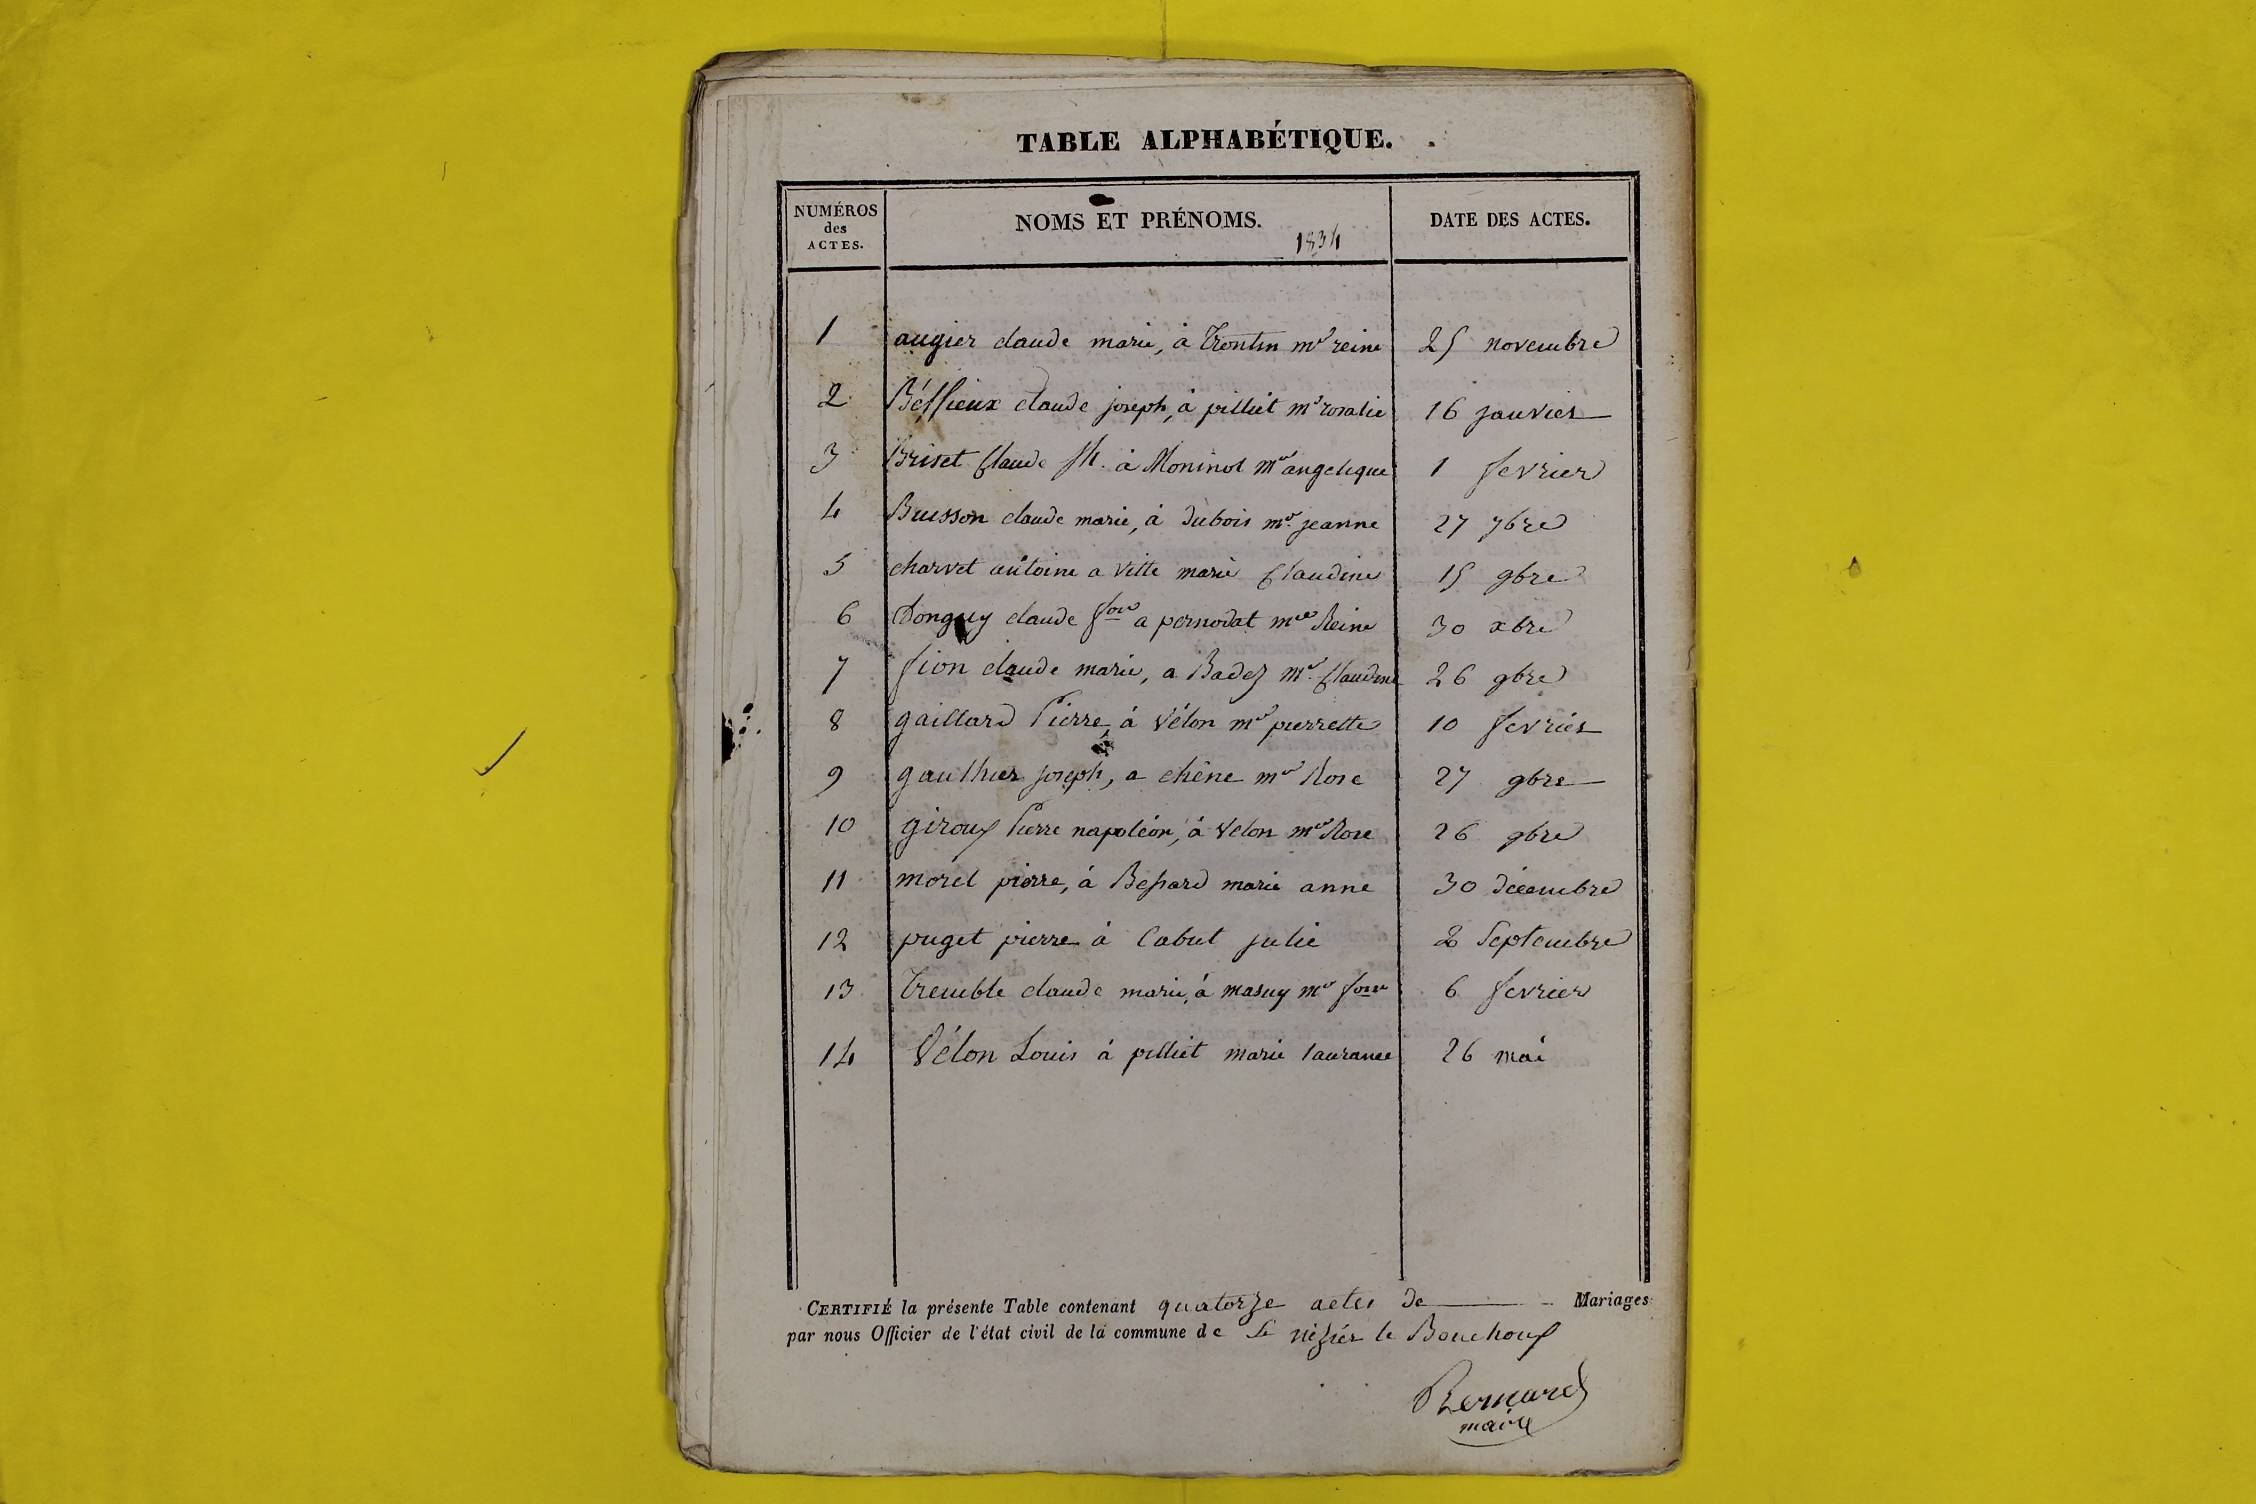 TABLE ALPHABÉTIQUE.
NUMÉROS des ACTES. NOMS ET PRÉNOMS. 1834 DATE DES ACTES.
1 augier claude marie, à Trontin mie reine 25 novembre
2 Béssieux claude joseph, à pilliet mie rosalie 16 janvier
3 Briset Claude Jh. à Moninot mie angelique 1 fevrier
4 Buisson claude marie, à dubois mie jeanne 27 7bre
5 charvet antoine a vitte marie Claudine 15 9bre
6 Donguy claude fois a pernodat mie Reine 30 xbre
7 fion claude marie, a Badez mie Claudine 26 9bre
8 gaillard Pierre, à Vélon mie pierrette 10 fevrier
9 gauthier joseph, a chêne mie Rose 27 9bre
10 giroux Pierre napoléon, à Velon mie Rose 26 9bre
11 morel pierre, à Bessard marie anne 30 décembre
12 puget pierre à Cabut julie 2 Septembre
13 Tremble claude marie, à masuy mie foise 6 fevrier
14 Vélon Louis à pilliet marie laurance 26 mai
CERTIFIÉ la présente Table contenant quatorze actes de Mariages
par nous Officier de l'état civil de la commune de St nizier le Bouchoux
Bernard
maire